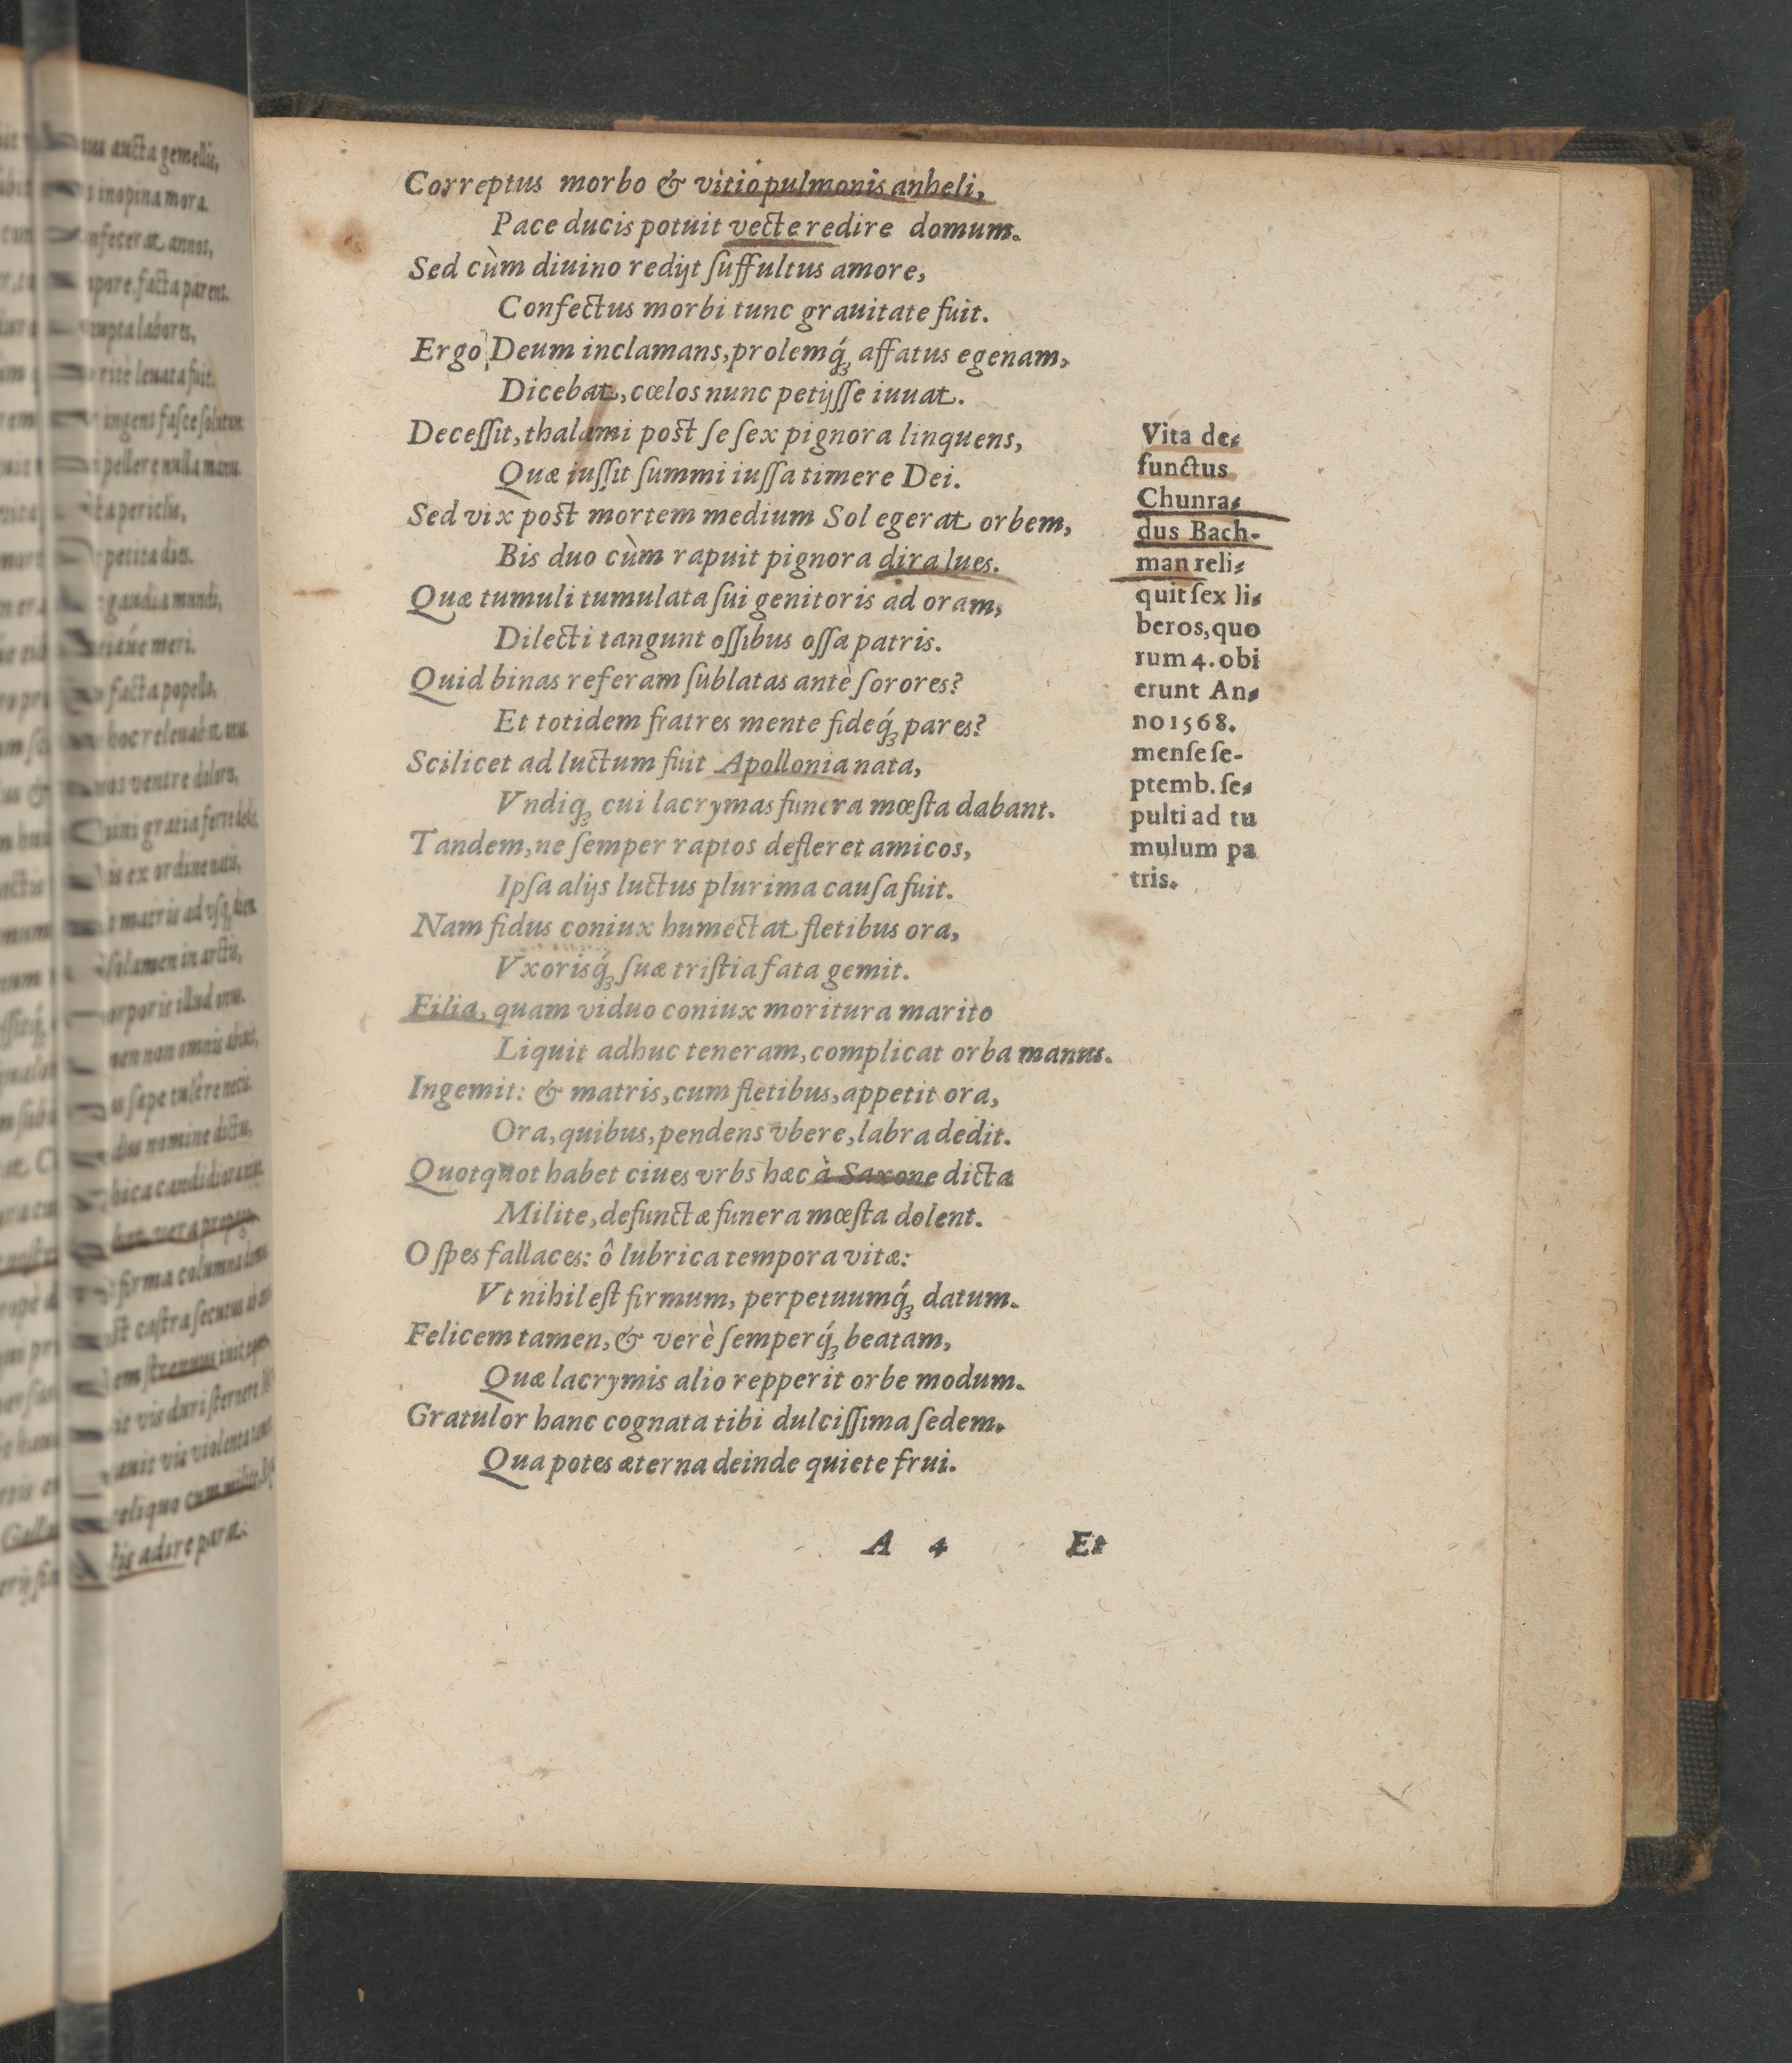 Correptus morbo & vitio pulmonis anheli,
Pace ducis potuit vecte redire domum.
Sed cùm diuino redijt ſuffultus amore,
Confectus morbi tunc grauitate fuit.
Ergò Deum inclamans, prolemq́ꝫ affatus egenam,
Dicebat, cœlos nunc petijſſe iuuat.
Deceſſit, thalami poſt ſe ſex pignora linquens,
Quæ iuſſit ſummi iuſſa timere Dei.
Sed vix poſt mortem medium Sol egerat orbem,
Bis duo cùm rapuit pignora dira lues.
Quæ tumuli tumulata ſui genitoris ad oram,
Dilecti tangunt oſſibus oſſa patris.
Quid binas referam ſublatas antè ſorores?
Et totidem fratres mente fideq́ꝫ pares?
Scilicet ad luctum fuit Apollonia nata,
Vndiqꝫ cui lacrymas funera mœſta dabant.
Tandem, ne ſemper raptos defleret amicos,
Ipſa alijs luctus plurima cauſa fuit.
Nam fidus coniux humectat fletibus ora,
Vxorisq́ꝫ ſuæ triſtia fata gemit.
Filia, quam viduo coniux moritura marito
Liquit adhuc teneram, complicat orba manus.
Ingemit: & matris, cum fletibus, appetit ora,
Ora, quibus, pendens vbere, labra dedit.
Quotquot habet ciues vrbs hæc à Saxone dicta
Milite, defunctæ funera mœſta dolent.
O ſpes fallaces: ô lubrica tempora vitæ:
Vt nihil eſt firmum, perpetuumq́ꝫ datum.
Felicem tamen, & verè ſemperq́ꝫ beatam,
Quæ lacrymis alio repperit orbe modum.
Gratulor hanc cognata tibi dulciſſima ſedem.
Qua potes æterna deinde quiete frui.
A 4 Et
Vita de⸗
functus
Chunra⸗
dus Bach-
man reli⸗
quit ſex li⸗
beros, quo
rum 4. obi
erunt An⸗
no 1568.
menſe ſe-
ptemb. ſe⸗
pulti ad tu
mulum pa
tris.